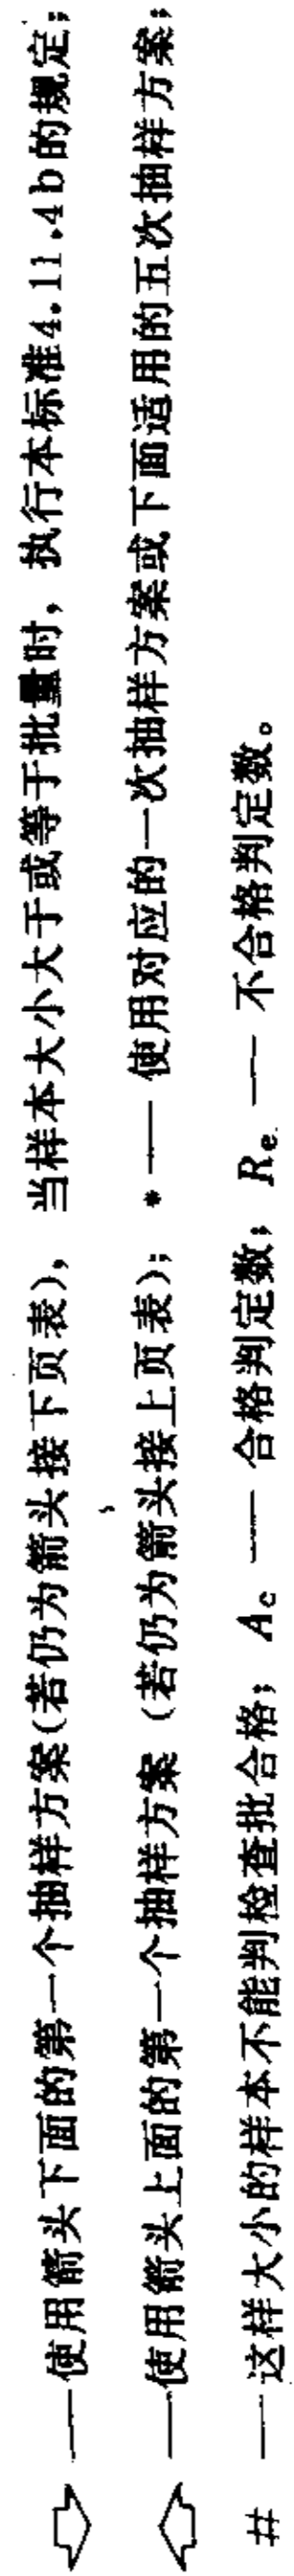 ⇩ ——使用箭头下面的第一个抽样方案(若仍为箭头接下页表), 当样本大小大于或等于批量时, 执行本标准4.11.4b的规定;
⇧ ——使用箭头上面的第一个抽样方案 (若仍为箭头接上页表); * —— 使用对应的一次抽样方案或下面适用的五次抽样方案;
# ——这样大小的样本不能判检查批合格; Ac —— 合格判定数; Re —— 不合格判定数。